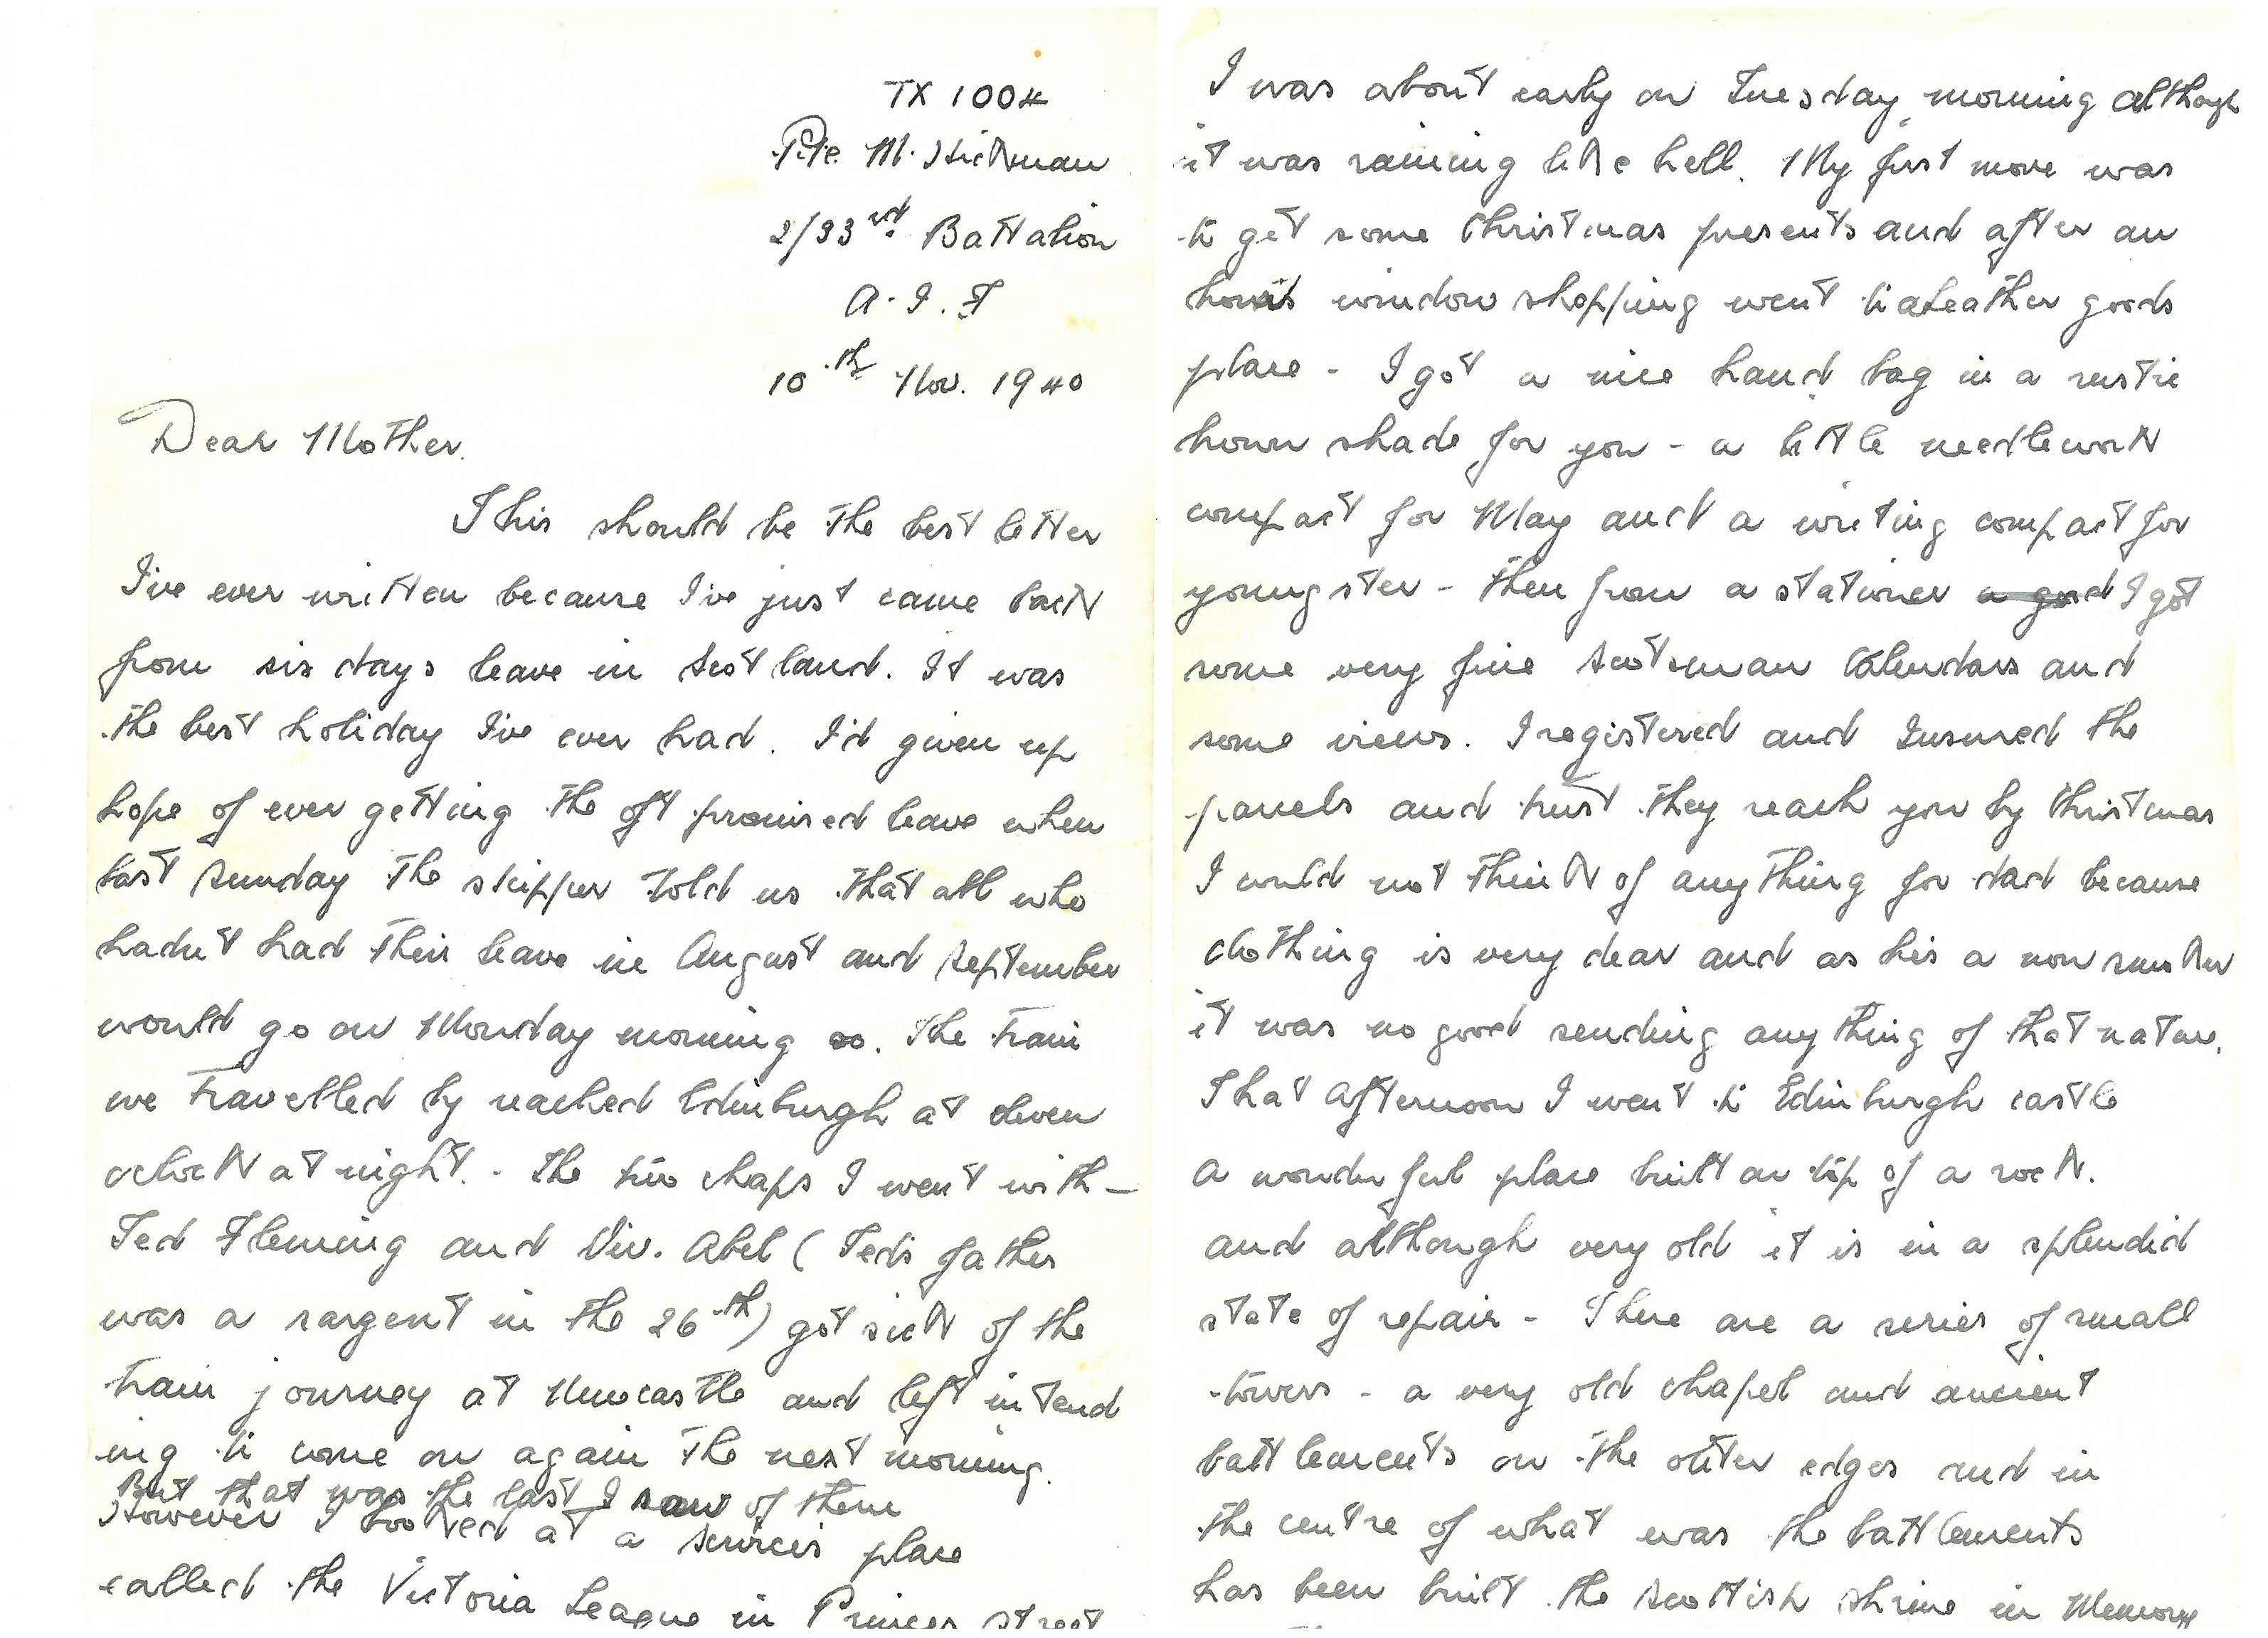 TX 1004
Pte. M. Hickman
2/33rd. Battalion
A. I. F
10th Nov. 1940
Dear Mother.
This should be the best letter
I've ever written because I've just came back
from six days leave in Scotland. It was
the best holiday I've ever had. I'd given up
hope of ever getting the oft promised leave when
last Sunday the skipper told us that all who
hadn't had their leave in August and September
would go on Monday morning so. The train
we travelled by reached Edinburgh at eleven
oclock at night. - The two chaps I went with -
Ted Fleming and Viv. Abel (Ted's father
was a sargent in the 26th) got sick of the
train journey at Newcastle and left intend
ing to come on again the next morning.
But that was the last I saw of them
However I booked at a services place
called the Victoria League in Princes street
I was about early on Tuesday morning although
it was raining like hell. My first move was
to get some Christmas presents and after an
hours window shopping went to a Leather goods
place - I got a nice hand bag in a rustic
brown shade for you - a little needlework
compact for May and a writing compact for
youngster - then from a stationer I got
some very fine Scotsman Calendars and
some views. I registered and Insured the
parcels and trust they reach you by Christmas
I could not think of anything for dad because
clothing is very dear and as his a non smoker
it was no good sending anything of that nature.
That afternoon I went to Edinburgh castle
a wonderful place built on top of a rock.
and although very old it is in a splendid
state of repair - There are a series of small
towers - a very old chapel and ancient
battlements on the outer edges and in
the centre of what was the battlements
has been built the Scottish shrine in Memory